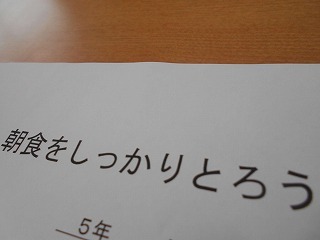 朝食をしっかりとろう
5年